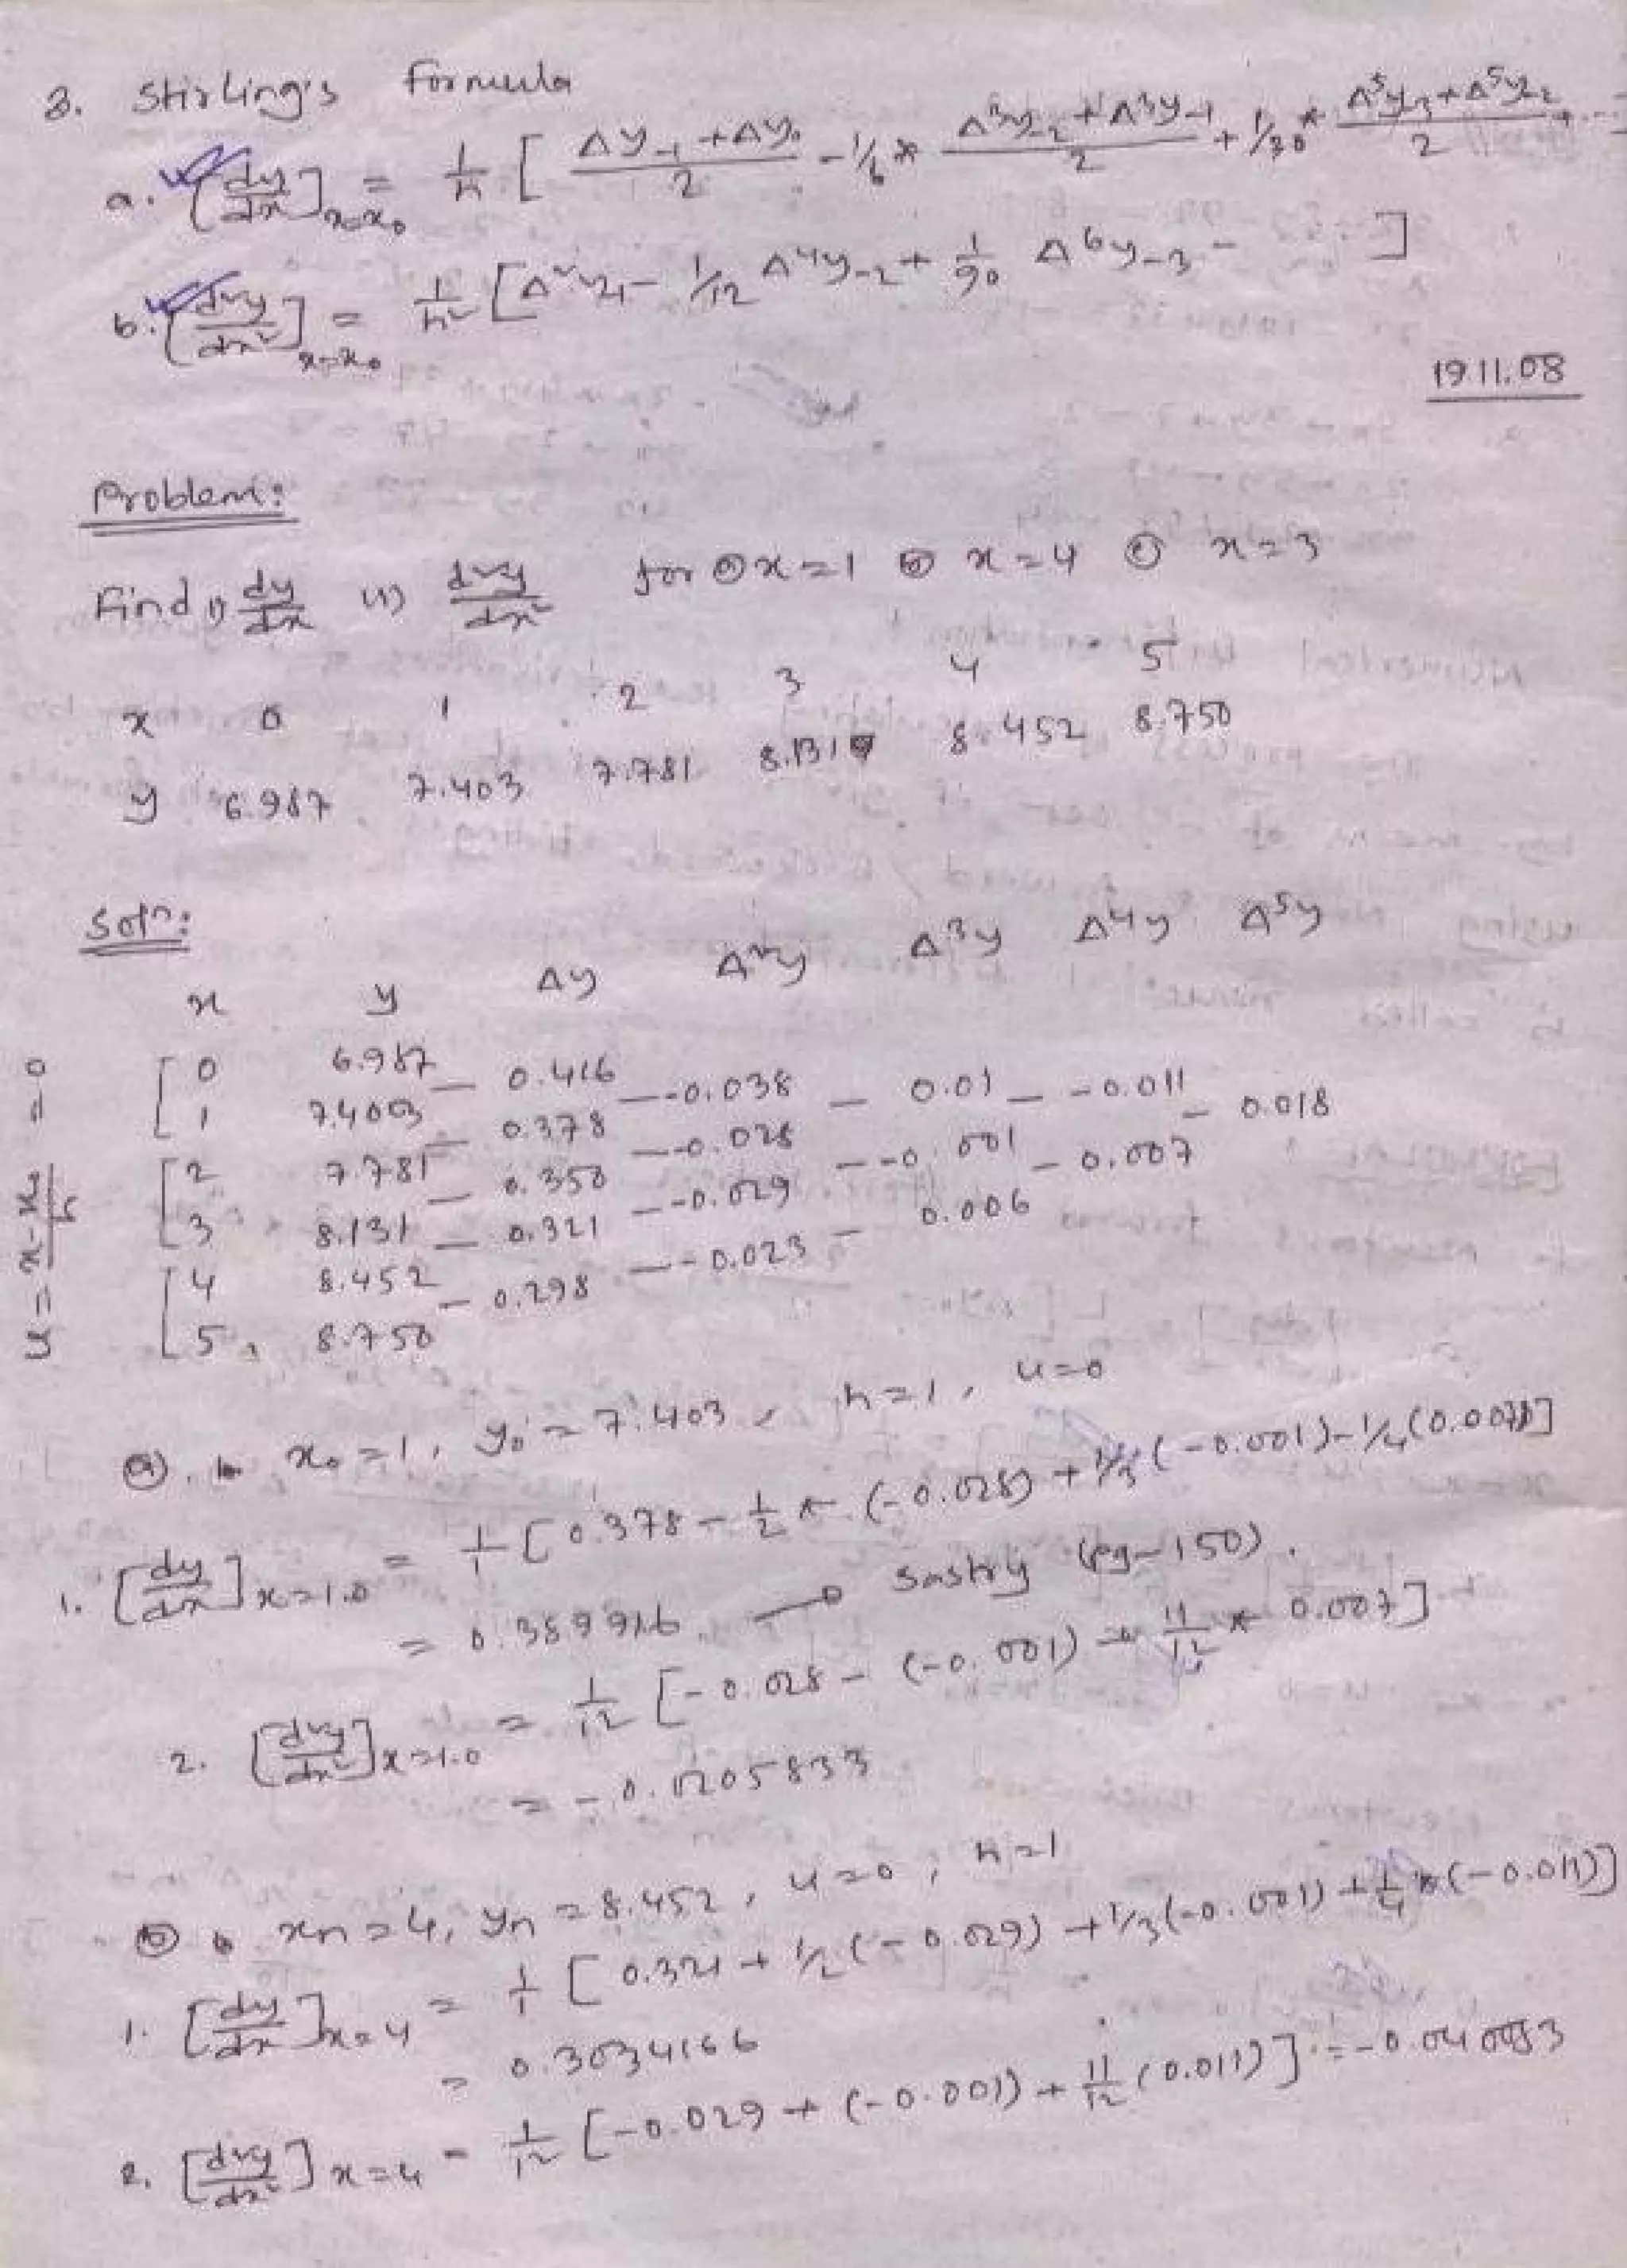 3. Stirling's Formula
a. [dy/dx]x=x0 = 1/h [ Δy-1 + Δy0 / 2 - 1/6 * Δ³y-2 + Δ³y-1 / 2 + 1/30 * Δ⁵y-3 + Δ⁵y-2 / 2 + ... ]
b. [d²y/dx²]x=x0 = 1/h² [Δ²y-1 - 1/12 Δ⁴y-2 + 1/90 Δ⁶y-3 - ]
19.11.08
Problem:
Find i) dy/dx ii) d²y/dx² for ⓐ x=1 ⓑ x=4 ⓒ x=3
x 0 1 2 3 4 5
y 6.987 7.403 7.781 8.131 8.452 8.750
Soln:
x y Δy Δ²y Δ³y Δ⁴y Δ⁵y
0 6.987 0.416 -0.038 0.01 -0.011 0.018
1 7.403 0.378 -0.028 -0.001 0.007
2 7.781 0.350 -0.029 0.006
3 8.131 0.321 -0.023
4 8.452 0.298
5 8.750
u = x-x0/h = 0
ⓐ. x0 = 1, y0 = 7.403, h=1, u=0
1. [dy/dx]x=1.0 = 1/1 [0.378 - 1/2 * (-0.028) + 1/3 (-0.001) - 1/4 (0.007)]
= 0.389916 → Sastry (pg-150).
2. [d²y/dx²]x=1.0 = 1/1² [-0.028 - (-0.001) + 11/12 * 0.007]
= -0.0205833
ⓑ xn = 4, yn = 8.452, u=0, h=1
1. [dy/dx]x=4 = 1/1 [0.321 + 1/2 (-0.029) + 1/3 (-0.001) + 1/4 * (-0.011)]
= 0.3034166
2. [d²y/dx²]x=4 = 1/1² [-0.029 + (-0.001) + 11/12 (0.011)] = -0.040083